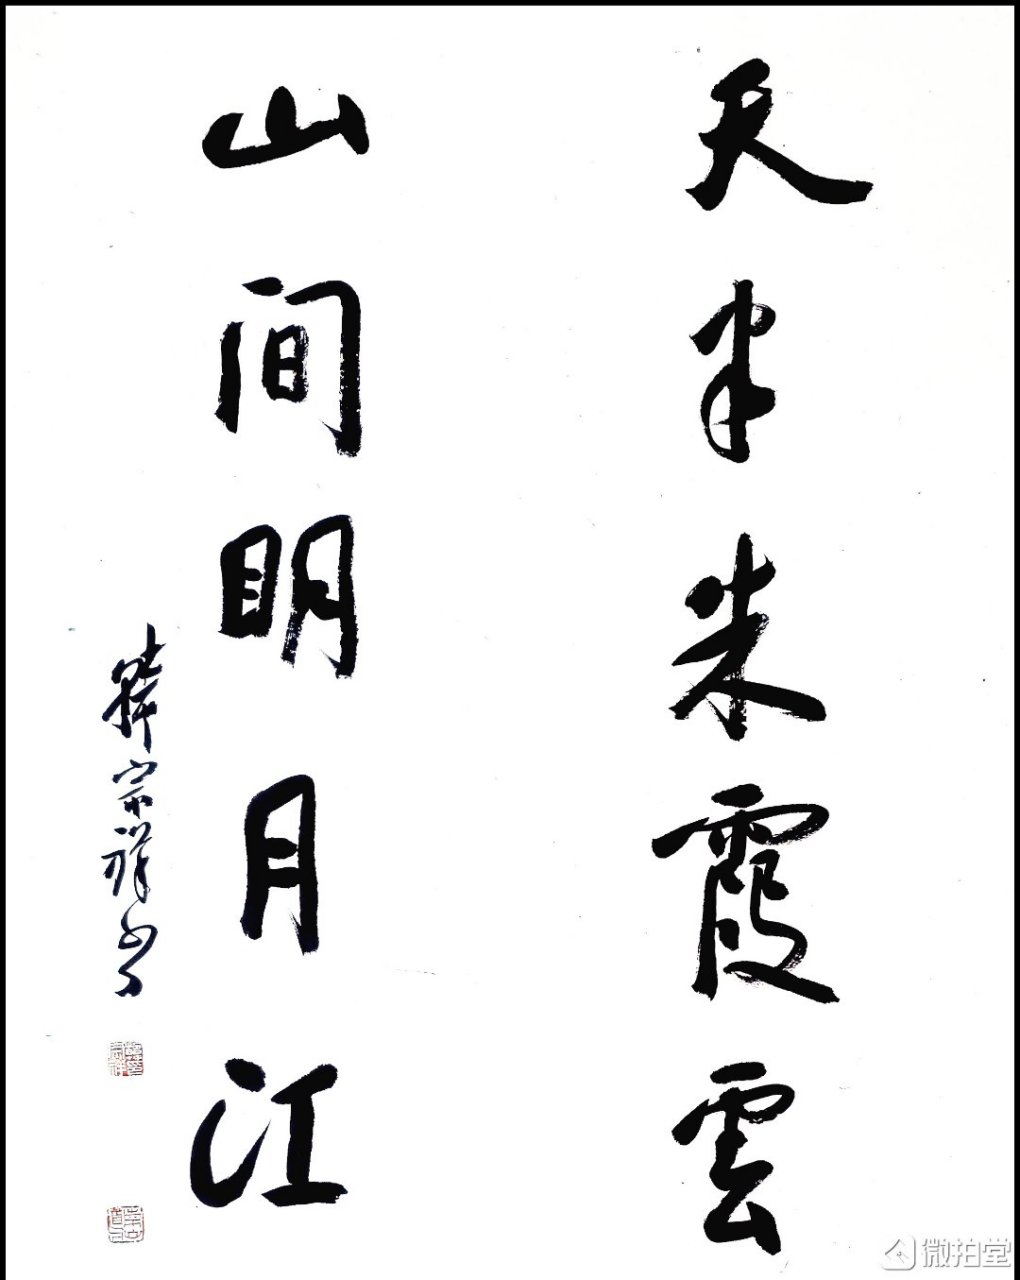 天半朱霞雲
山間明月江
韓宗祥書
微拍堂